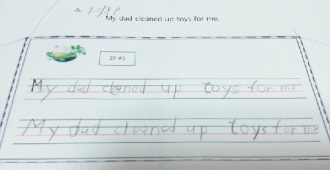 My dad cleaned up toys for me.
My dad cleaned up toys for me
My dad cleaned up toys for me